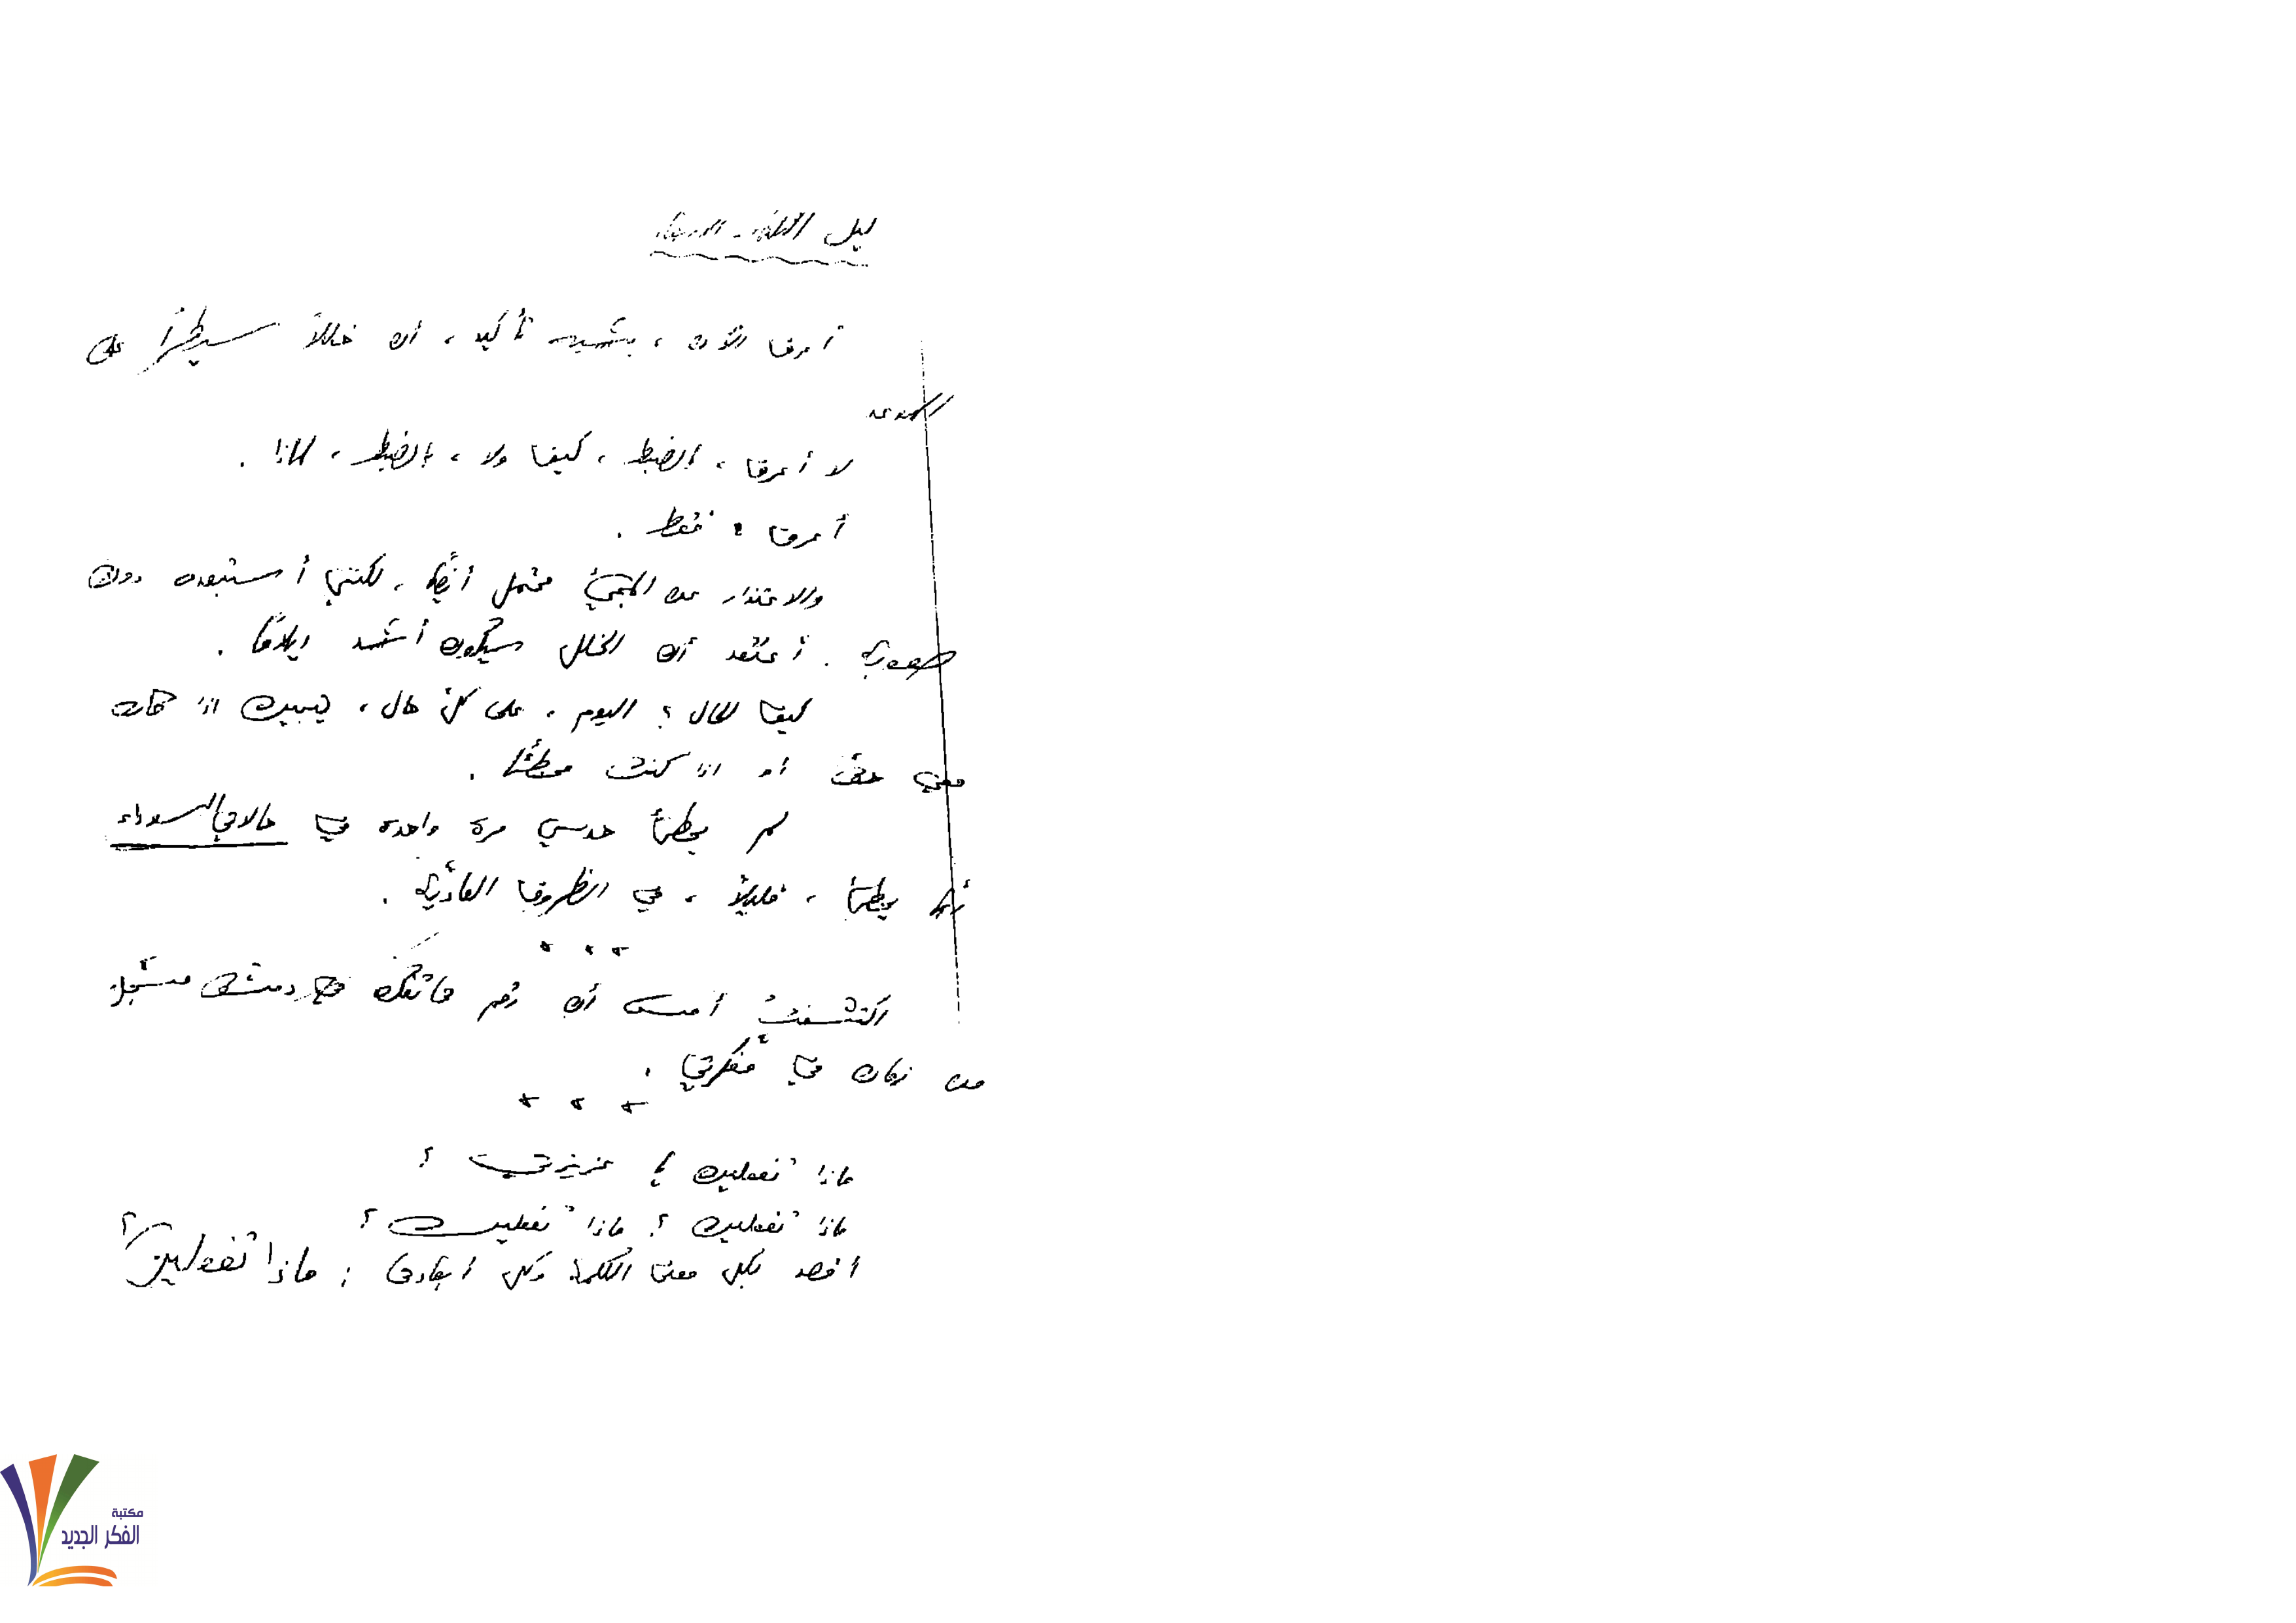 ليل الثلاثاء - الاربعاء
أعرف الآن ، بشبه تأكيد ، أن خللاً سيطرأ على
الموعد
لا أعرف ، بالضبط ، كيف ولا ، بالضبط ، لماذا .
أعرف ، فقط .
والاعتذار عن المجيء محتمل أيضًا ، لكنني أستبعده دون
صعوبة . أعتقد أن الخلل سيكون أشد إيلامًا .
كيف الحال ؟ اليوم ، على كلّ حال ، يتبين اذا كان
معي حق أو اذا كنت مخطئًا .
لم يخطئ حدسي مرة واحدة في حالاتي السوداء
ربّما يخطئ ، قليلاً ، في الظروف العاديّة .
* * *
اكتشفتُ أمس أن رقم هاتفك في دمشق مسجّل
من زمان في مفكرتي .
* * *
ماذا تفعلين يا عزيزتي ؟
ماذا تفعلين ؟ ماذا تفعلين ؟
أقصد بكل معنى الكلمة وكل أبعادها : ماذا تفعلين ؟
مكتبة
الفكر الجديد